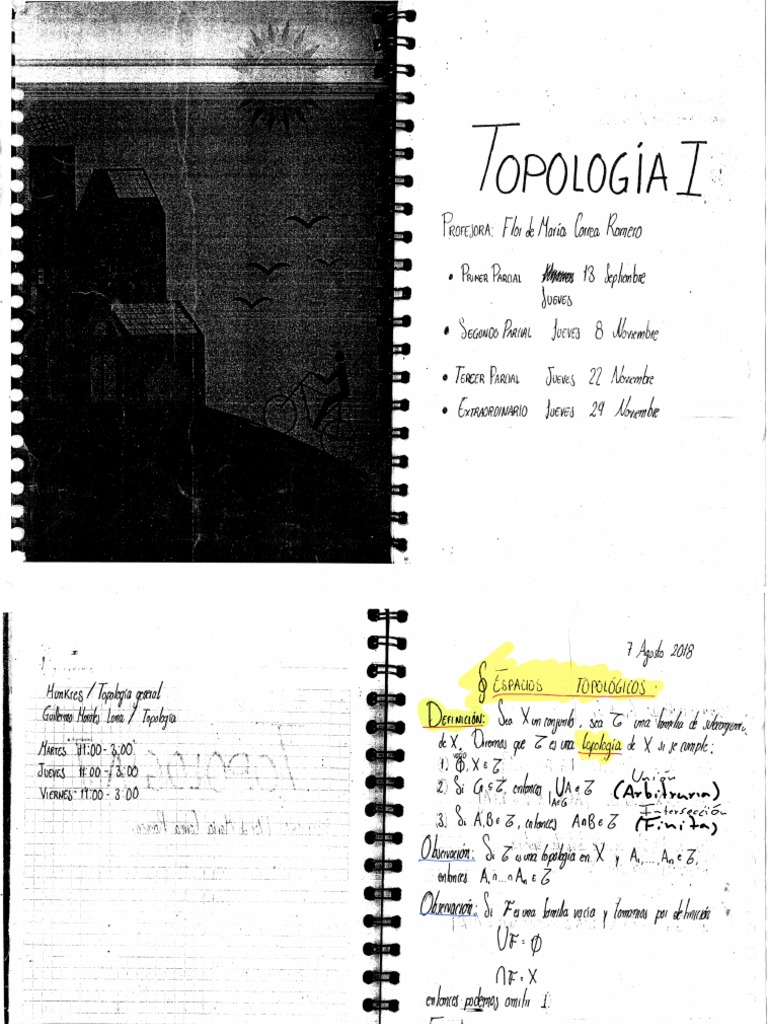 TOPOLOGÍA I
PROFESORA: Flor de María Correa Romero
• PRIMER PARCIAL 13 Septiembre
JUEVES
• SEGUNDO PARCIAL JUEVES 8 Noviembre
• TERCER PARCIAL JUEVES 22 Noviembre
• EXTRAORDINARIO JUEVES 29 Noviembre
Munkres / Topología general
Guillermo / Topología
MARTES 11:00 - 3:00
JUEVES 11:00 - 3:00
VIERNES 11:00 - 3:00
7 Agosto 2018
§ ESPACIOS TOPOLÓGICOS.
DEFINICIÓN: Sea X un conjunto, sea τ una familia de subconjuntos
de X. Diremos que τ es una topología de X si se cumple:
vacío
1) ∅, X ∈ τ
2) Si G ⊆ τ, entonces ⋃A ∈ τ Unión
A∈G (Arbitraria)
3) Si A, B ∈ τ, entonces A∩B ∈ τ Intersección
(Finita)
Observación: Si τ es una topología en X y A₁,..., Aₙ ∈ τ,
entonces A₁∩...∩Aₙ ∈ τ
Observación: Si F es una familia vacía y tomamos por definición
⋃F = ∅
⋂F = X
entonces podemos omitir 1.